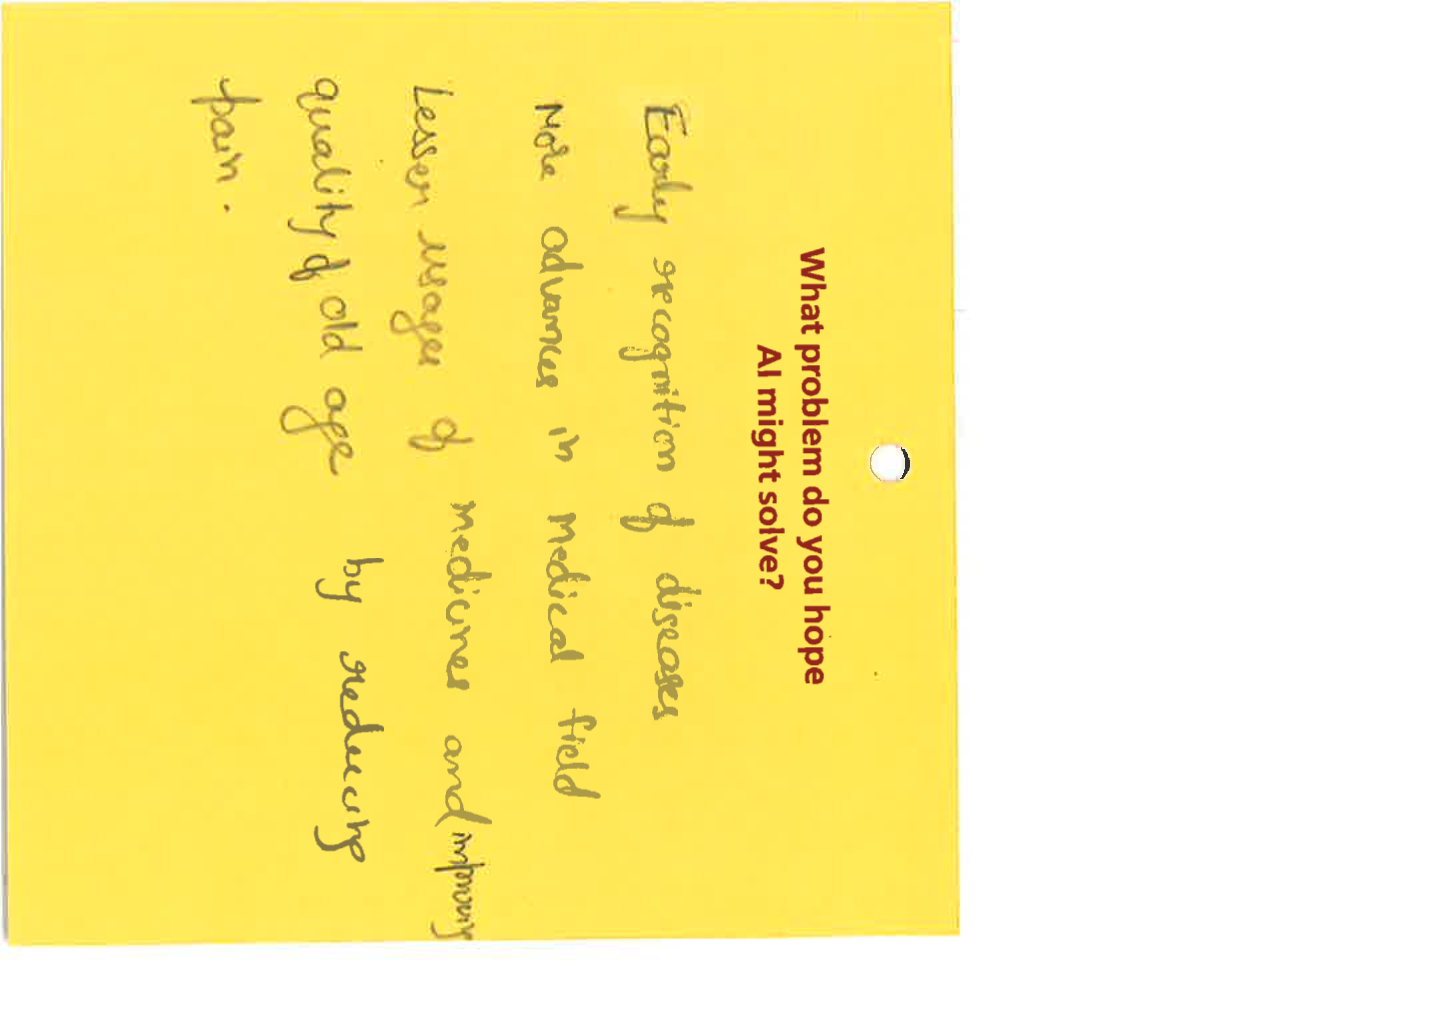 What problem do you hope
AI might solve?
Early recognition of diseases
More advances in medical field
Lessen usages of medicines and improving
quality of old age by reducing
pain.